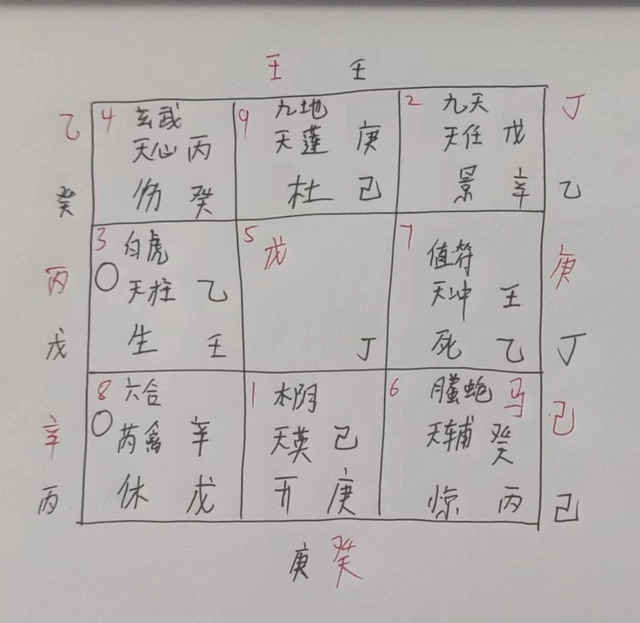 壬 壬
乙
癸
4 玄武
天心 丙
伤 癸
9 九地
天蓬 庚
杜 己
2 九天
天任 戊
景 辛
丁
乙
丙
戊
3 白虎
○ 天柱 乙
生 壬
5 戊
丁
7 值符
天冲 壬
死 乙
庚
丁
辛
丙
8 六合
○ 芮禽 辛
休 戊
1 太阴
天英 己
开 庚
6 螣蛇 马
天辅 癸
惊 丙
己
己
庚 癸